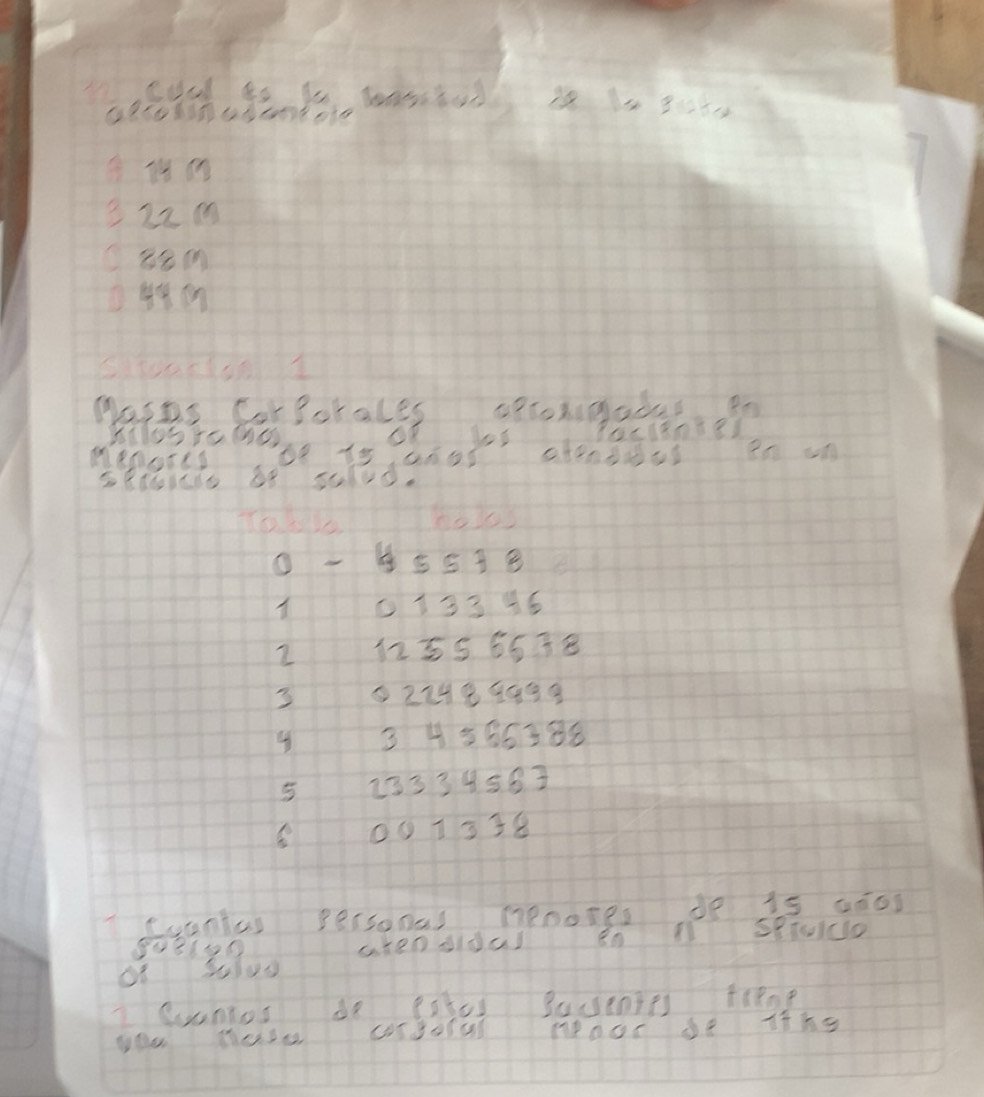 Cual es la de la
A 14 M
B 22 M
C 88 M
D 44 M
Situacion 1
Masas Corporales en
de los Pacientes
Menores de 15 años atendidos en un
servicio de salud.
Tabla hojas
0 - 45578
1 013346
2 12556678
3 022489999
4 34566788
5 23334567
6 001378
1 Cuantas Personas Menores de 15 años
atendidas en servicio
de salud
2 Cuantos de estos Pacientes tiene
una Masa corporal menor de kg